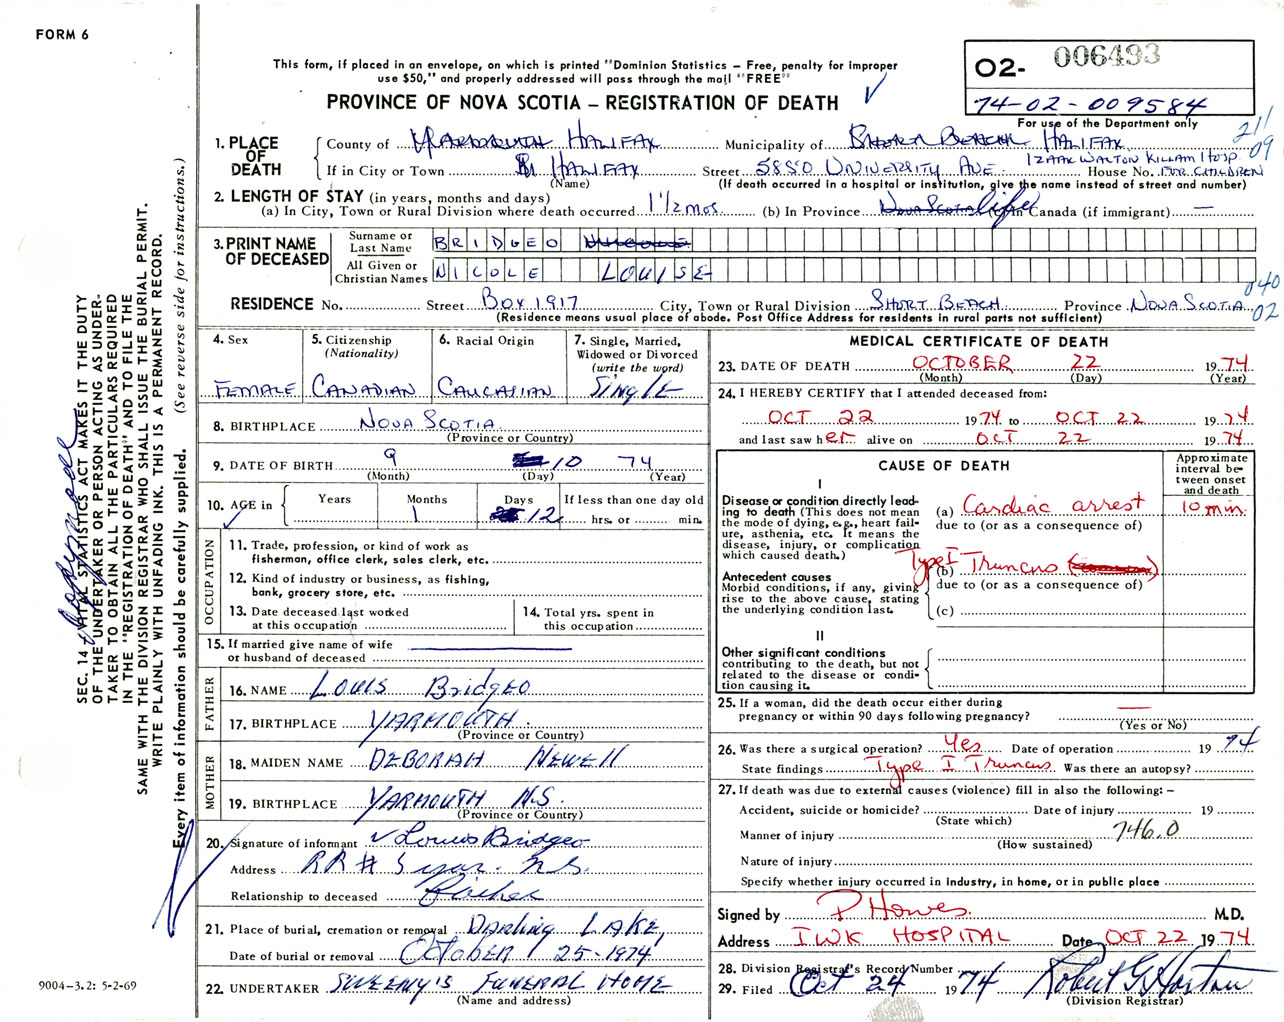 FORM 6
This form, if placed in an envelope, on which is printed "Dominion Statistics – Free, penalty for improper
use $50," and properly addressed will pass through the mail "FREE"
PROVINCE OF NOVA SCOTIA – REGISTRATION OF DEATH
O2- 006493
74-02-009584
For use of the Department only
211
09
1. PLACE OF DEATH
County of Yarmouth Halifax Municipality of Short Beach Halifax
If in City or Town Halifax Street 5850 University Ave House No.
Izaak Walton Killam Hosp. For Children
(Name) (If death occurred in a hospital or institution, give the name instead of street and number)
2. LENGTH OF STAY (in years, months and days)
(a) In City, Town or Rural Division where death occurred 1 1/2 mos. (b) In Province Nova Scotia life (c) In Canada (if immigrant) —
3. PRINT NAME OF DECEASED
Surname or Last Name BRIDGEO
All Given or Christian Names NICOLE LOUISE
RESIDENCE No. Street Box 1917 City, Town or Rural Division Short Beach Province Nova Scotia
040
02
(Residence means usual place of abode. Post Office Address for residents in rural parts not sufficient)
4. Sex
Female
5. Citizenship
(Nationality)
Canadian
6. Racial Origin
Caucasian
7. Single, Married,
Widowed or Divorced
(write the word)
Single
8. BIRTHPLACE Nova Scotia
(Province or Country)
9. DATE OF BIRTH 9 10 74
(Month) (Day) (Year)
10. AGE in
Years Months Days If less than one day old
1 12 hrs. or min.
OCCUPATION
11. Trade, profession, or kind of work as
fisherman, office clerk, sales clerk, etc.
12. Kind of industry or business, as fishing,
bank, grocery store, etc.
13. Date deceased last worked
at this occupation
14. Total yrs. spent in
this occupation
15. If married give name of wife
or husband of deceased
FATHER
16. NAME Louis Bridgeo
17. BIRTHPLACE Yarmouth
(Province or Country)
MOTHER
18. MAIDEN NAME Deborah Newell
19. BIRTHPLACE Yarmouth N.S.
(Province or Country)
20. Signature of informant Louis Bridgeo
Address RR # 5 Yar. N.S.
Relationship to deceased Father
21. Place of burial, cremation or removal Darling Lake,
Date of burial or removal October 25-1974
22. UNDERTAKER Sweeny's Funeral Home
(Name and address)
MEDICAL CERTIFICATE OF DEATH
23. DATE OF DEATH October 22 1974
(Month) (Day) (Year)
24. I HEREBY CERTIFY that I attended deceased from:
Oct 22 1974 to Oct 22 1974
and last saw her alive on Oct 22 1974
CAUSE OF DEATH
Approximate
interval be-
tween onset
and death
I
Disease or condition directly lead-
ing to death (This does not mean
the mode of dying, e.g., heart fail-
ure, asthenia, etc. It means the
disease, injury, or complication
which caused death.)
(a) Cardiac arrest 10 min.
due to (or as a consequence of)
Antecedent causes
Morbid conditions, if any, giving
rise to the above cause, stating
the underlying condition last.
(b) Type I Truncus
due to (or as a consequence of)
(c)
II
Other significant conditions
contributing to the death, but not
related to the disease or condi-
tion causing it.
25. If a woman, did the death occur either during
pregnancy or within 90 days following pregnancy? —
(Yes or No)
26. Was there a surgical operation? Yes Date of operation 1974
State findings Type I Truncus Was there an autopsy?
27. If death was due to external causes (violence) fill in also the following: –
Accident, suicide or homicide? Date of injury 19
(State which)
Manner of injury 746.0
(How sustained)
Nature of injury
Specify whether injury occurred in industry, in home, or in public place
Signed by P Howes M.D.
Address IWK Hospital Date Oct 22 1974
28. Division Registrar's Record Number
29. Filed Oct 24 1974
(Division Registrar)
SEC. 14 – VITAL STATISTICS ACT MAKES IT THE DUTY
OF THE UNDERTAKER OR PERSON ACTING AS UNDER-
TAKER TO OBTAIN ALL THE PARTICULARS REQUIRED
IN THE "REGISTRATION OF DEATH" AND TO FILE THE
SAME WITH THE DIVISION REGISTRAR WHO SHALL ISSUE THE BURIAL PERMIT.
WRITE PLAINLY WITH UNFADING INK. THIS IS A PERMANENT RECORD.
Every item of information should be carefully supplied. (See reverse side for instructions.)
9004-3.2: 5-2-69